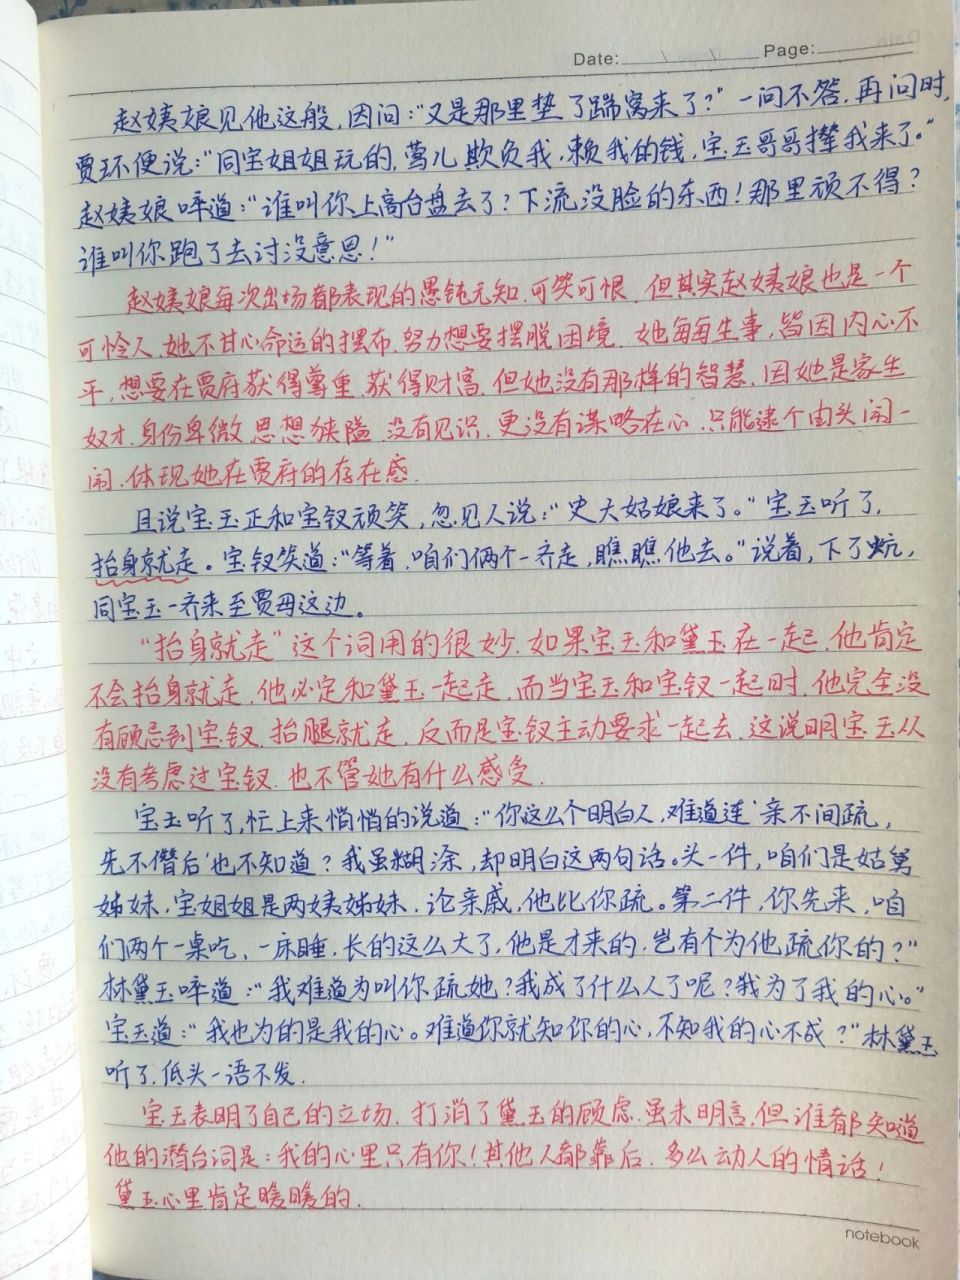 Date: Page:
赵姨娘见他这般,因问:“又是那里垫了踹窝来了?”一问不答,再问时,
贾环便说:“同宝姐姐玩的,莺儿欺负我,赖我的钱,宝玉哥哥撵我来了。”
赵姨娘啐道:“谁叫你上高台盘去了?下流没脸的东西!那里顽不得?
谁叫你跑了去讨没意思!”
赵姨娘每次出场都表现的愚钝无知.可笑可恨.但其实赵姨娘也是一个
可怜人.她不甘心命运的摆布.努力想要摆脱困境.她每每生事,皆因内心不
平,想要在贾府获得尊重.获得财富.但她没有那样的智慧.因她是家生
奴才.身份卑微 思想狭隘.没有见识.更没有谋略在心.只能逮个由头闹一
闹.体现她在贾府的存在感.
且说宝玉正和宝钗顽笑,忽见人说:“史大姑娘来了。”宝玉听了,
抬身就走。宝钗笑道:“等着,咱们俩个一齐走,瞧瞧他去。”说着,下了炕,
同宝玉一齐来至贾母这边。
“抬身就走”这个词用的很妙.如果宝玉和黛玉在一起.他肯定
不会抬身就走.他必定和黛玉一起走.而当宝玉和宝钗一起时.他完全没
有顾忌到宝钗.抬腿就走.反而是宝钗主动要求一起去.这说明宝玉从
没有考虑过宝钗.也不管她有什么感受.
宝玉听了,忙上来悄悄的说道:“你这么个明白人,难道连‘亲不间疏,
先不僭后’也不知道?我虽糊涂,却明白这两句话。头一件,咱们是姑舅
姊妹,宝姐姐是两姨姊妹,论亲戚,他比你疏。第二件,你先来,咱
们两个一桌吃,一床睡,长的这么大了,他是才来的,岂有个为他疏你的?”
林黛玉啐道:“我难道为叫你疏她?我成了什么人了呢?我为了我的心。”
宝玉道:“我也为的是我的心。难道你就知你的心,不知我的心不成?”林黛玉
听了.低头一语不发.
宝玉表明了自己的立场.打消了黛玉的顾虑.虽未明言,但谁都知道
他的潜台词是:我的心里只有你!其他人都靠后.多么动人的情话!
黛玉心里肯定暖暖的.
notebook